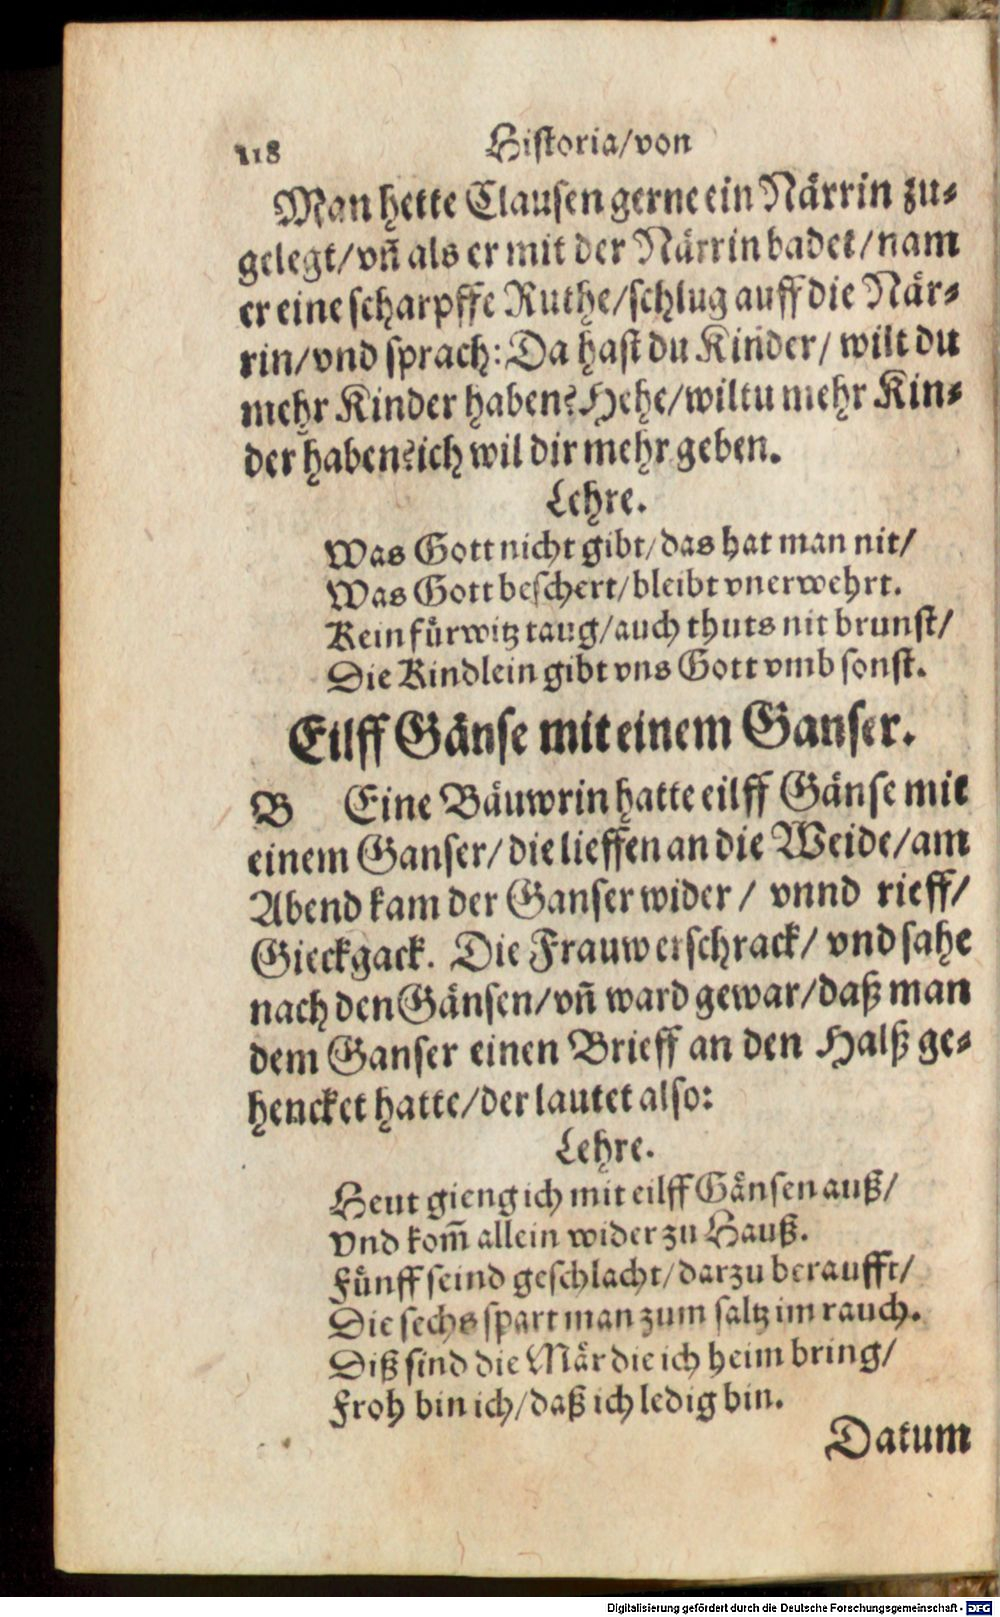 118 Historia/von
Man hette Clausen gerne ein Närrin zu-
gelegt/vñ als er mit der Närrin badet/nam
er eine scharpffe Ruthe/schlug auff die När-
rin/vnd sprach: Da hast du Kinder/ wilt du
mehr Kinder haben? Hehe/wiltu mehr Kin-
der haben? ich wil dir mehr geben.
Lehre.
Was Gott nicht gibt/das hat man nit/
Was Gott beschert/bleibt vnerwehrt.
Kein fürwitz taug/auch thuts nit brunst/
Die Kindlein gibt vns Gott vmb sonst.
Eilff Gänse mit einem Ganser.
B Eine Bäuwrin hatte eilff Gänse mit
einem Ganser/die lieffen an die Weide/am
Abend kam der Ganser wider / vnnd rieff/
Gieckgack. Die Frauw erschrack/ vnd sahe
nach den Gänsen/vñ ward gewar/daß man
dem Ganser einen Brieff an den Halß ge-
hencket hatte/der lautet also:
Lehre.
Heut gieng ich mit eilff Gänsen auß/
Vnd kom̃ allein wider zu Hauß.
Fünff seind geschlacht/darzu beraufft/
Die sechs spart man zum saltz im rauch.
Diß sind die Mär die ich heim bring/
Froh bin ich/daß ich ledig bin.
Datum
Digitalisierung gefördert durch die Deutsche Forschungsgemeinschaft - DFG